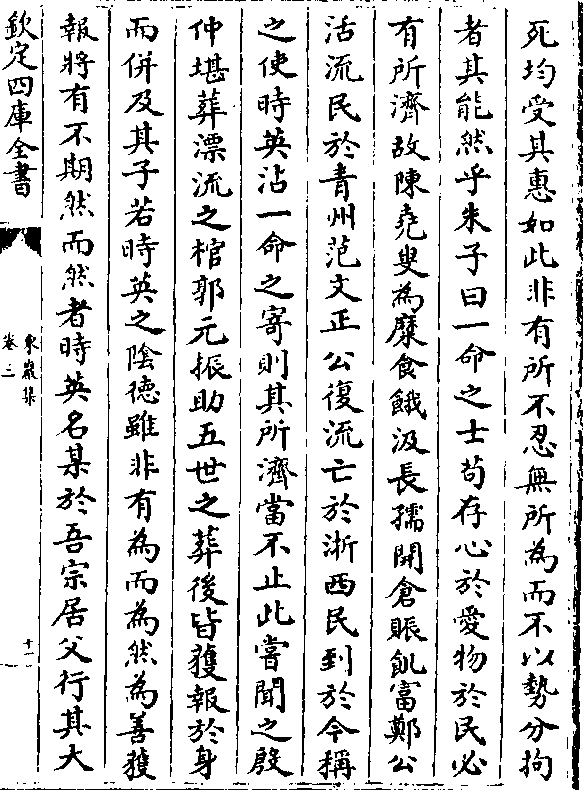 死均受其惠如此非有所不忍無所為而不以勢分拘
者其能然乎朱子曰一命之士苟存心於愛物於民必
有所濟故陳堯叟為糜食餓汲長孺開倉賑飢富鄭公
活流民於青州范文正公復流亡於浙西民到於今稱
之使時英沾一命之寄則其所濟當不止此嘗聞之殷
仲堪葬漂流之棺郭元振助五世之葬後皆獲報於身
而併及其子若時英之陰德雖非有為而為然為善獲
報將有不期然而然者時英名某於吾宗居父行其大
欽定四庫全書
東巖集
卷三
十一